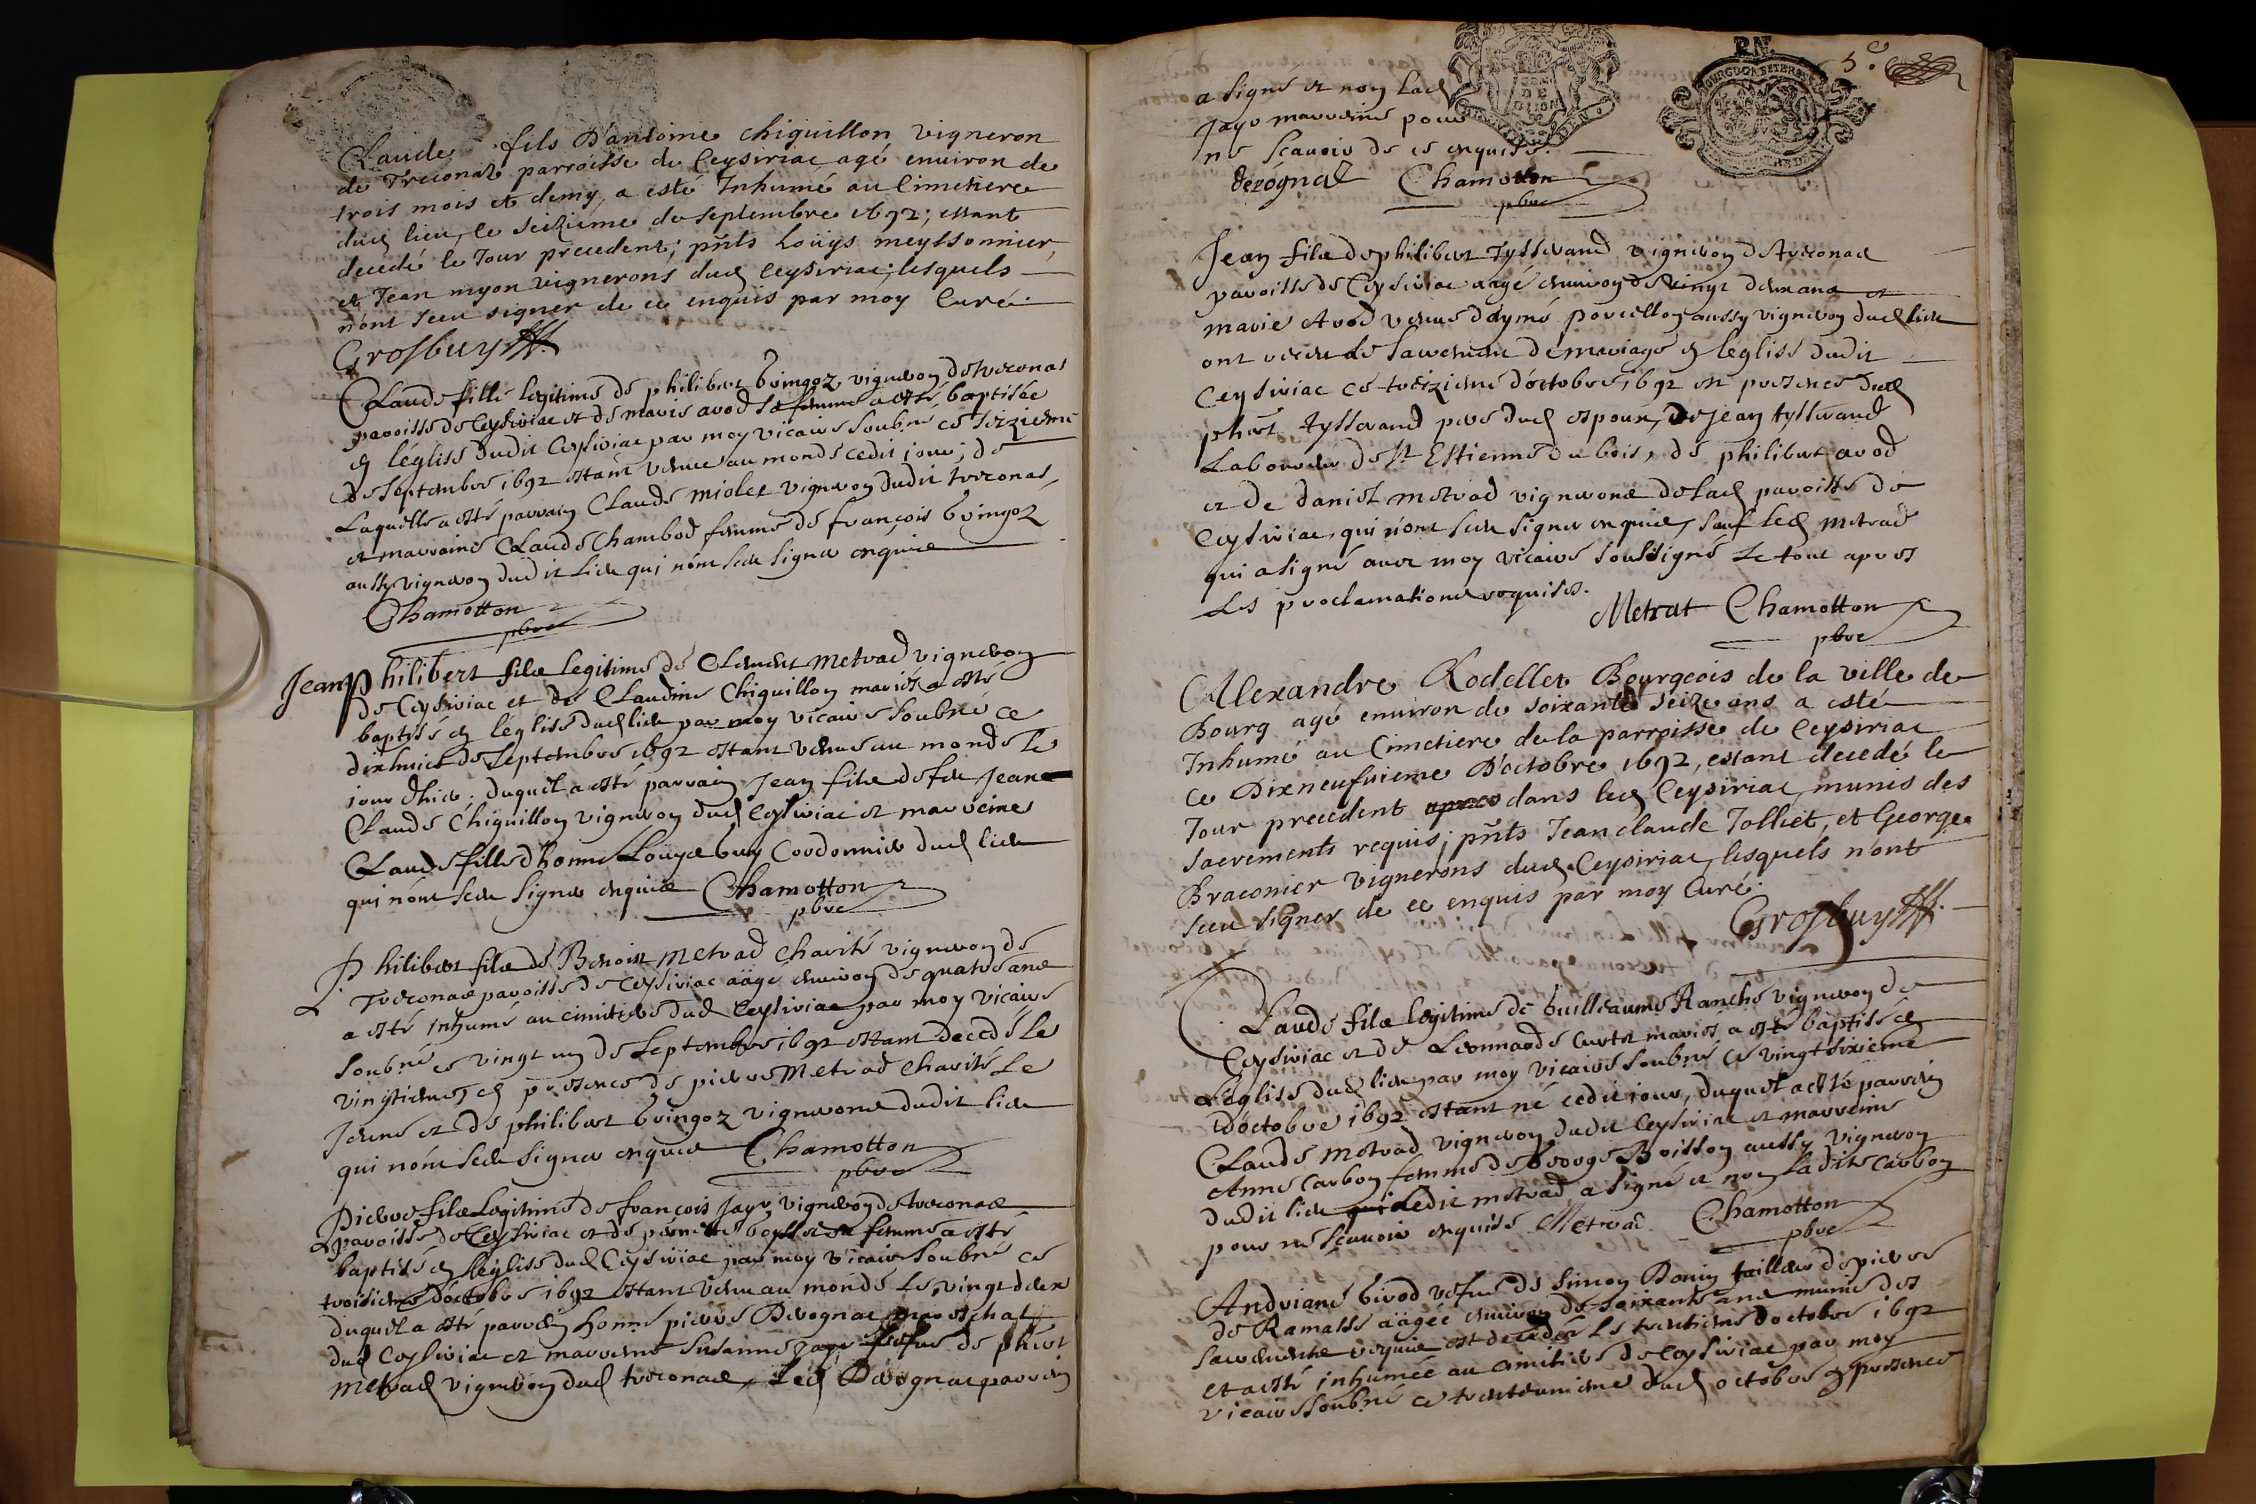 Claude fils D'antoine chiguillon vigneron
de Treconas parroisse de Ceysiriac agé environ de
trois mois et demy, a esté Inhumé au Cimetiere
dud lieu, le seizieme de septembre 1692; estant
decedé le Jour precedent; pñts Loüys meyssonnier,
et Jean myon vignerons dud Ceysiriac; lesquels
n'ont sceu signer de ce enquis par moy Curé.
Grosbuy
Claude fille legitime de philibert Gringoz vigneron de treconas
paroisse de Ceysiriac et de marie avod sa femme a esté baptisée
en léglise dudit Ceysiriac par moy vicaire soubné ce seizieme
de septembre 1692 estant venue au monde cedit jour; de
Laquelle a esté parrain Claude miolet vigneron dudit treconas,
et marraine Claude Chambod femme de françois Gringoz
aussy vigneron dudit Lieu qui nónt sceu signer enquis
Chamotton
pbre
Jean philibert fils legitime de Clement metrad vigneron
de Ceysiriac et de Claudine Chiguillon mariés a esté
baptisé en léglise dud lieu par moy vicaire soubné ce
dixhuict de Septembre 1692 estant venu au monde le
jour dhier. duquel a esté parrain Jean fils de feu Jean
Claude Chiguillon vigneron dud Ceysiriac et marreine
Claude fille dhonne Louys buy Cordonnier dud lieu
qui nónt sceu signer enquis Chamotton
pbre
Philibert fils de Benoist Metrad Charité vigneron de
Treconas paroisse de Ceysiriac aäge environ de quatre ans
a esté inhumé au cimitiere dud Ceysiriac par moy vicaire
soubné ce vingt un de Septembre 1692 estant decedé le
vingtieme, en presence de pierre Metrad Charité Le
Jeune et de philibert Gringoz vignerons dudit lieu
qui nónt sceu signer enquis Chamotton
pbre
Pierre fils Legitime de françois Jayr vigneron de treconas
paroisse de Ceysiriac et de pernette sa femme a esté
baptisé en léglise dud Ceysiriac par moy vicaire soubné ce
troisieme doctobre 1692 estant venu au monde Le vingt deux
duquel a esté parrein honné pierre Derognat mareschal
dud Ceysiriac et marreine Susanne Jayr vefue de phibt
metrad vigneron dud treconas, Led Derognat parrein
5e
a signé et non Lad
Jayr marreine pour
ne scavoir de ce enquise.
derognat Chamotton
pbre
Jean fils de philibert Tysserand vigneron de treconas
paroisse de Ceysiriac aagé environ de vingt deux ans et
marie Avod vefue dáymé porcellon aussy vigneron dud lieu
ont receu le sacrement de mariage en léglise dudit
Ceysiriac ce treizieme doctobre 1692 en presence dud
phibt tysserand pere dud espoux, de Jean tysserand
Laboureur de St Estienne du bois, de philibert avod
et de daniel metrad vignerons de Lad paroisse de
Ceysiriac, qui n'ont sceu signer enquis, sauf led metrad
qui a signé avec moy vicaire soussigné Le tout apres
Les proclamations requises.
Metrat Chamotton
pbre
Alexandre Rodellet Bourgeois de la ville de
Bourg agé environ de soixante seize ans a esté
Inhumé au Cimetiere de la parroisse de Ceysiriac
ce Dixneufuieme D'octobre 1692, estant decedé le
Jour precedent dans led Ceysiriac, munis des
sacrements requis; pñts Jean claude Jolliet, et George
Braconier vignerons dud Ceysiriac, lesquels n'ont
sceu signer de ce enquis par moy Curé.
Grosbuy
Claude fils legitime de Guilleaume Ranche vigneron de
Ceysiriac et de Leonnarde Curtet mariés a esté baptisé en
Léglise dud lieu par moy vicaire soubné ce vingt sixieme
d'octobre 1692 estant né cedit jour, duquel a esté parrein
Claude metrad vigneron dudit Ceysiriac et marreine
Anne Carbon femme de George Boisson aussy vigneron
dudit lieu qui Ledit metrad a signé et non Ladite Carbon
pour ne scavoir enquise Metrad Chamotton
pbre
Andriane Girod vefue de Simon Bonin tailleur de pierre
de Ramasse aägée environ de soixante ans munie des
sacrements requis est decedée Le trentieme doctobre 1692
et a esté inhumée au cimitiere de Ceysiriac par moy
vicaire soubné ce trenteunieme dud octobre en presence